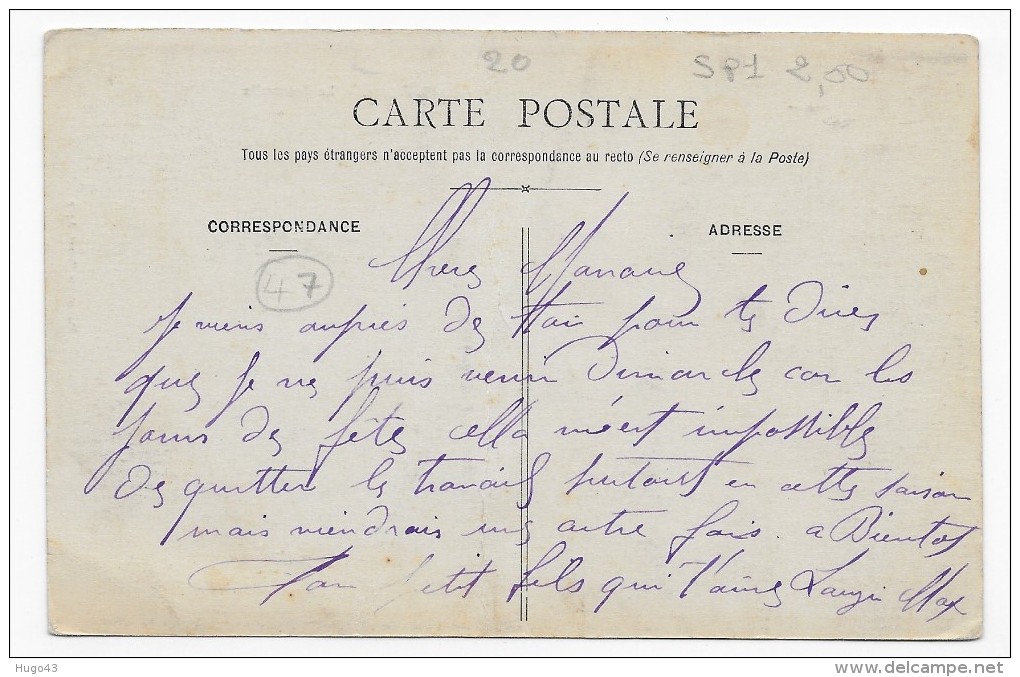 20 SP1 2,00
CARTE POSTALE
Tous les pays étrangers n'acceptent pas la correspondance au recto (Se renseigner à la Poste)
CORRESPONDANCE
ADRESSE
47
Chere Maman
Je viens aupres de toi pour te dire
que je ne puis venir Dimanche car les
jours de fête cella m'est impossible
de quitter le travail surtout en cette saison
mais viendrais une autre fois. a Bientot
Ton petit fils qui t'aime Max
Hugo43
www.delcampe.net